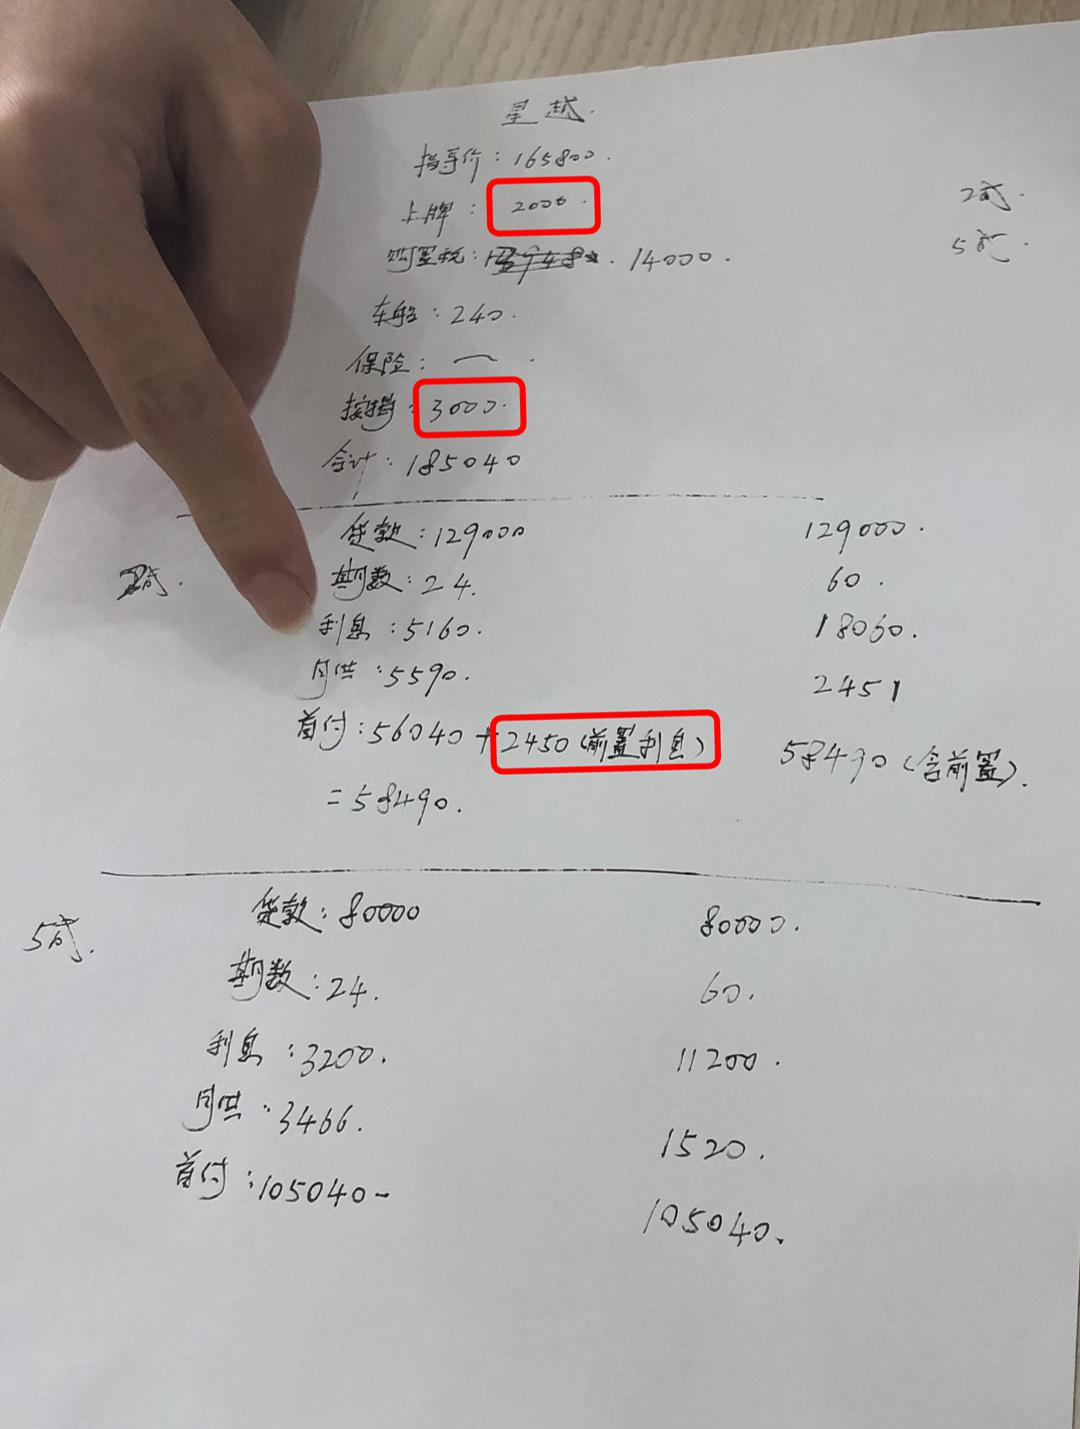 星越.
指导价: 165800.
上牌: 2000.
2成.
5成.
购置税: 14000.
车船: 240.
保险: —.
按揭: 3000.
合计: 185040
2成.
贷款: 129000 129000.
期数: 24. 60.
利息: 5160. 18060.
月供: 5590. 2451
首付: 56040 + 2450 (前置利息) 58490 (含前置).
= 58490.
5成.
贷款: 80000 80000.
期数: 24. 60.
利息: 3200. 11200.
月供: 3466. 1520.
首付: 105040- 105040.